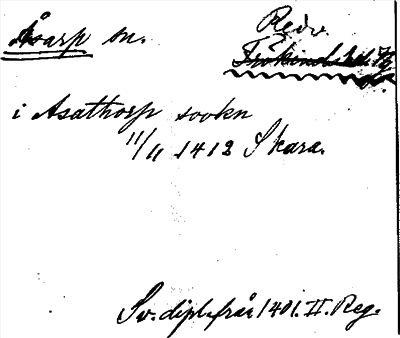 Åsarp sn.
Redv.
Frökind hd.
i Asathorp sookn
11/11 1412 Skara.
Sv. dipl. från 1401. II. Reg.